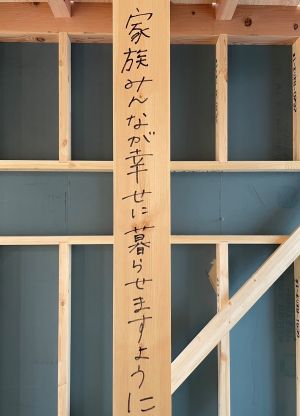 家族みんなが幸せに暮らせますように